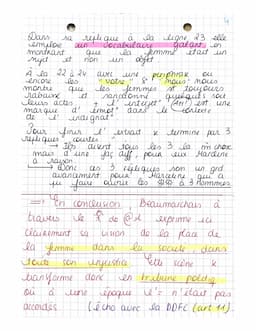 4
Dans sa réplique à la ligne 23 elle
emploie un vocabulaire galant en
montrant que la femme était un
sujet et non un objet
À la 22 à 24 avec une périphrase ou
encore les "votre" & "nous" nous
montre que les femmes st toujours
rabaissé et sanctionné quelques soit
leurs actes + l'interjet° (Ah!) est une
marque d' dans le contexte
de l'
Pour finir l'extrait x termine par 3
répliques courtes
→ Ils disent tous les 3 la m̂ chose
mais d'une faç diff, pour eux Marceline
a raison
→ Donc ces 3 répliques son un grd
avancement pour Marceline qui a
pu faire les 3 hommes
⇒ En conclusion, Beaumarchais à
travers le de exprime ici
clairement sa vision de la place de
la femme dans la société, dans
toute son injustice. Cette scène x
transforme donc en tribune politiq
où à une époque l'= n'était pas
accordée. (écho avec la DDFC (art 11))